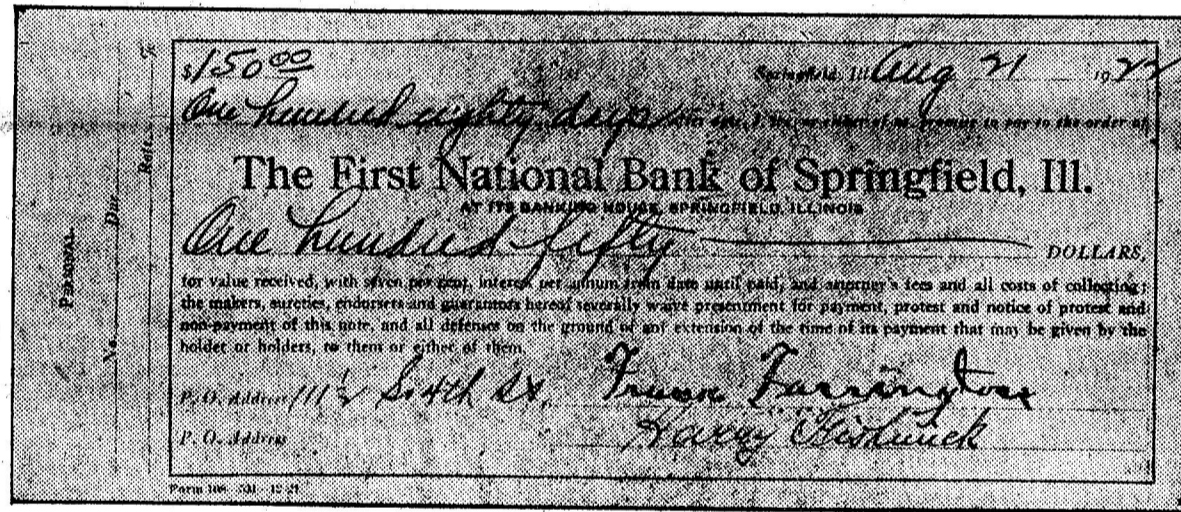 $150 00 Springfield, Ill. Aug 21 1922
One hundred eighty days after date, I, we, or either of us promise to pay to the order of
The First National Bank of Springfield, Ill.
AT ITS BANKING HOUSE, SPRINGFIELD, ILLINOIS
One hundred fifty DOLLARS,
for value received, with seven per cent, interest per annum from date until paid, and attorney's fees and all costs of collecting;
the makers, sureties, endorsers and guarantors hereof severally waive presentment for payment, protest and notice of protest and
non-payment of this note, and all defenses on the ground of any extension of the time of its payment that may be given by the
holder or holders, to them or either of them.
P. O. Address 111½ So 4th St, Frank Farrington
P. O. Address Harry Fishwick
Form 108
PARAGPAL
No. Due